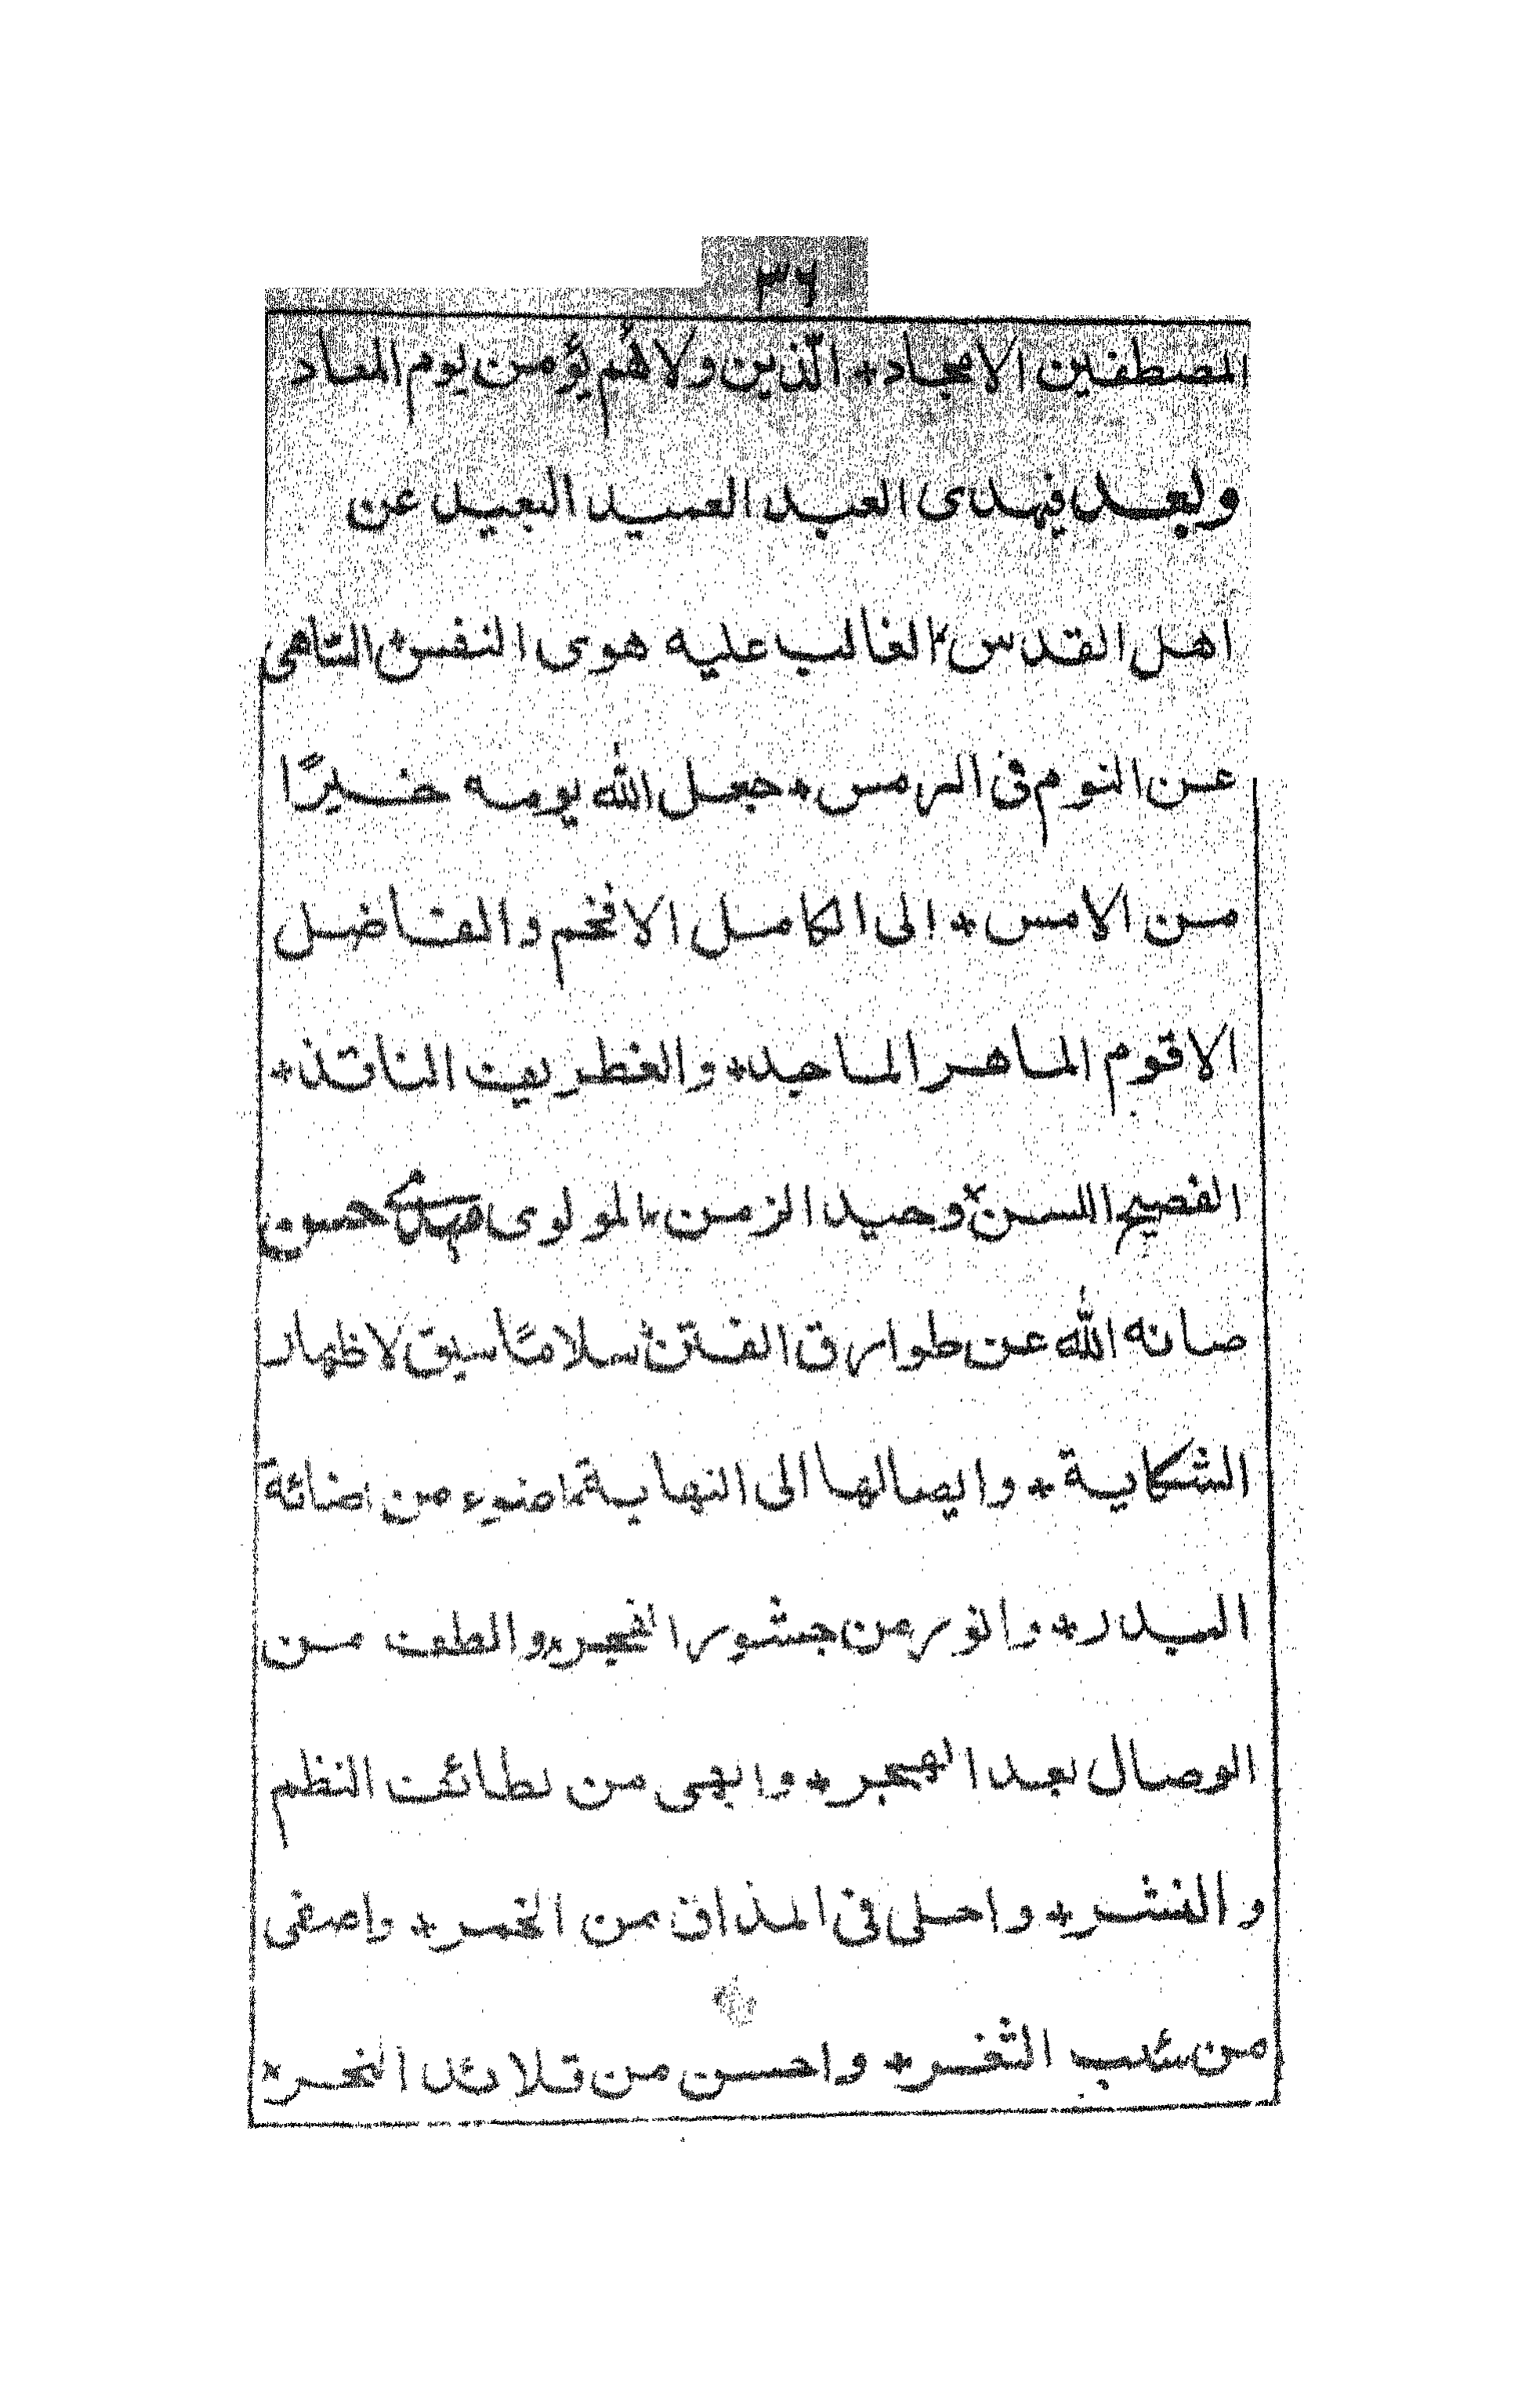 ٣٦
المصطفين الامجاد + الّذين ولاهُم يؤمن يوم المعاد
وبعد فيهدى العبد العميد البعيد عن
اهل القدس + الغالب عليه هوى النفس + الساهى
عن النوم فى الرمس + جعل الله يومه خيرًا
من الامس + الى الكامل الافخم والفاضل
الاقوم الماهر الماجد + والغطريف الناقد +
الفصيح اللسن + وحيد الزمن + المولوى مهدى حسن
صانه الله عن طوارق الفتن + سلامًا سيق لاظهار
الشكاية + وايصالها الى النهاية + اضوء من اضائة
البدر + وانور من جشور الفجر + والطف من
الوصال بعد الهجر + وابهى من لطائف النظم
والنثر + واحلى فى المذاق من الخمر + واصفى
من شنب الثغر + واحسن من قلائد النحر +